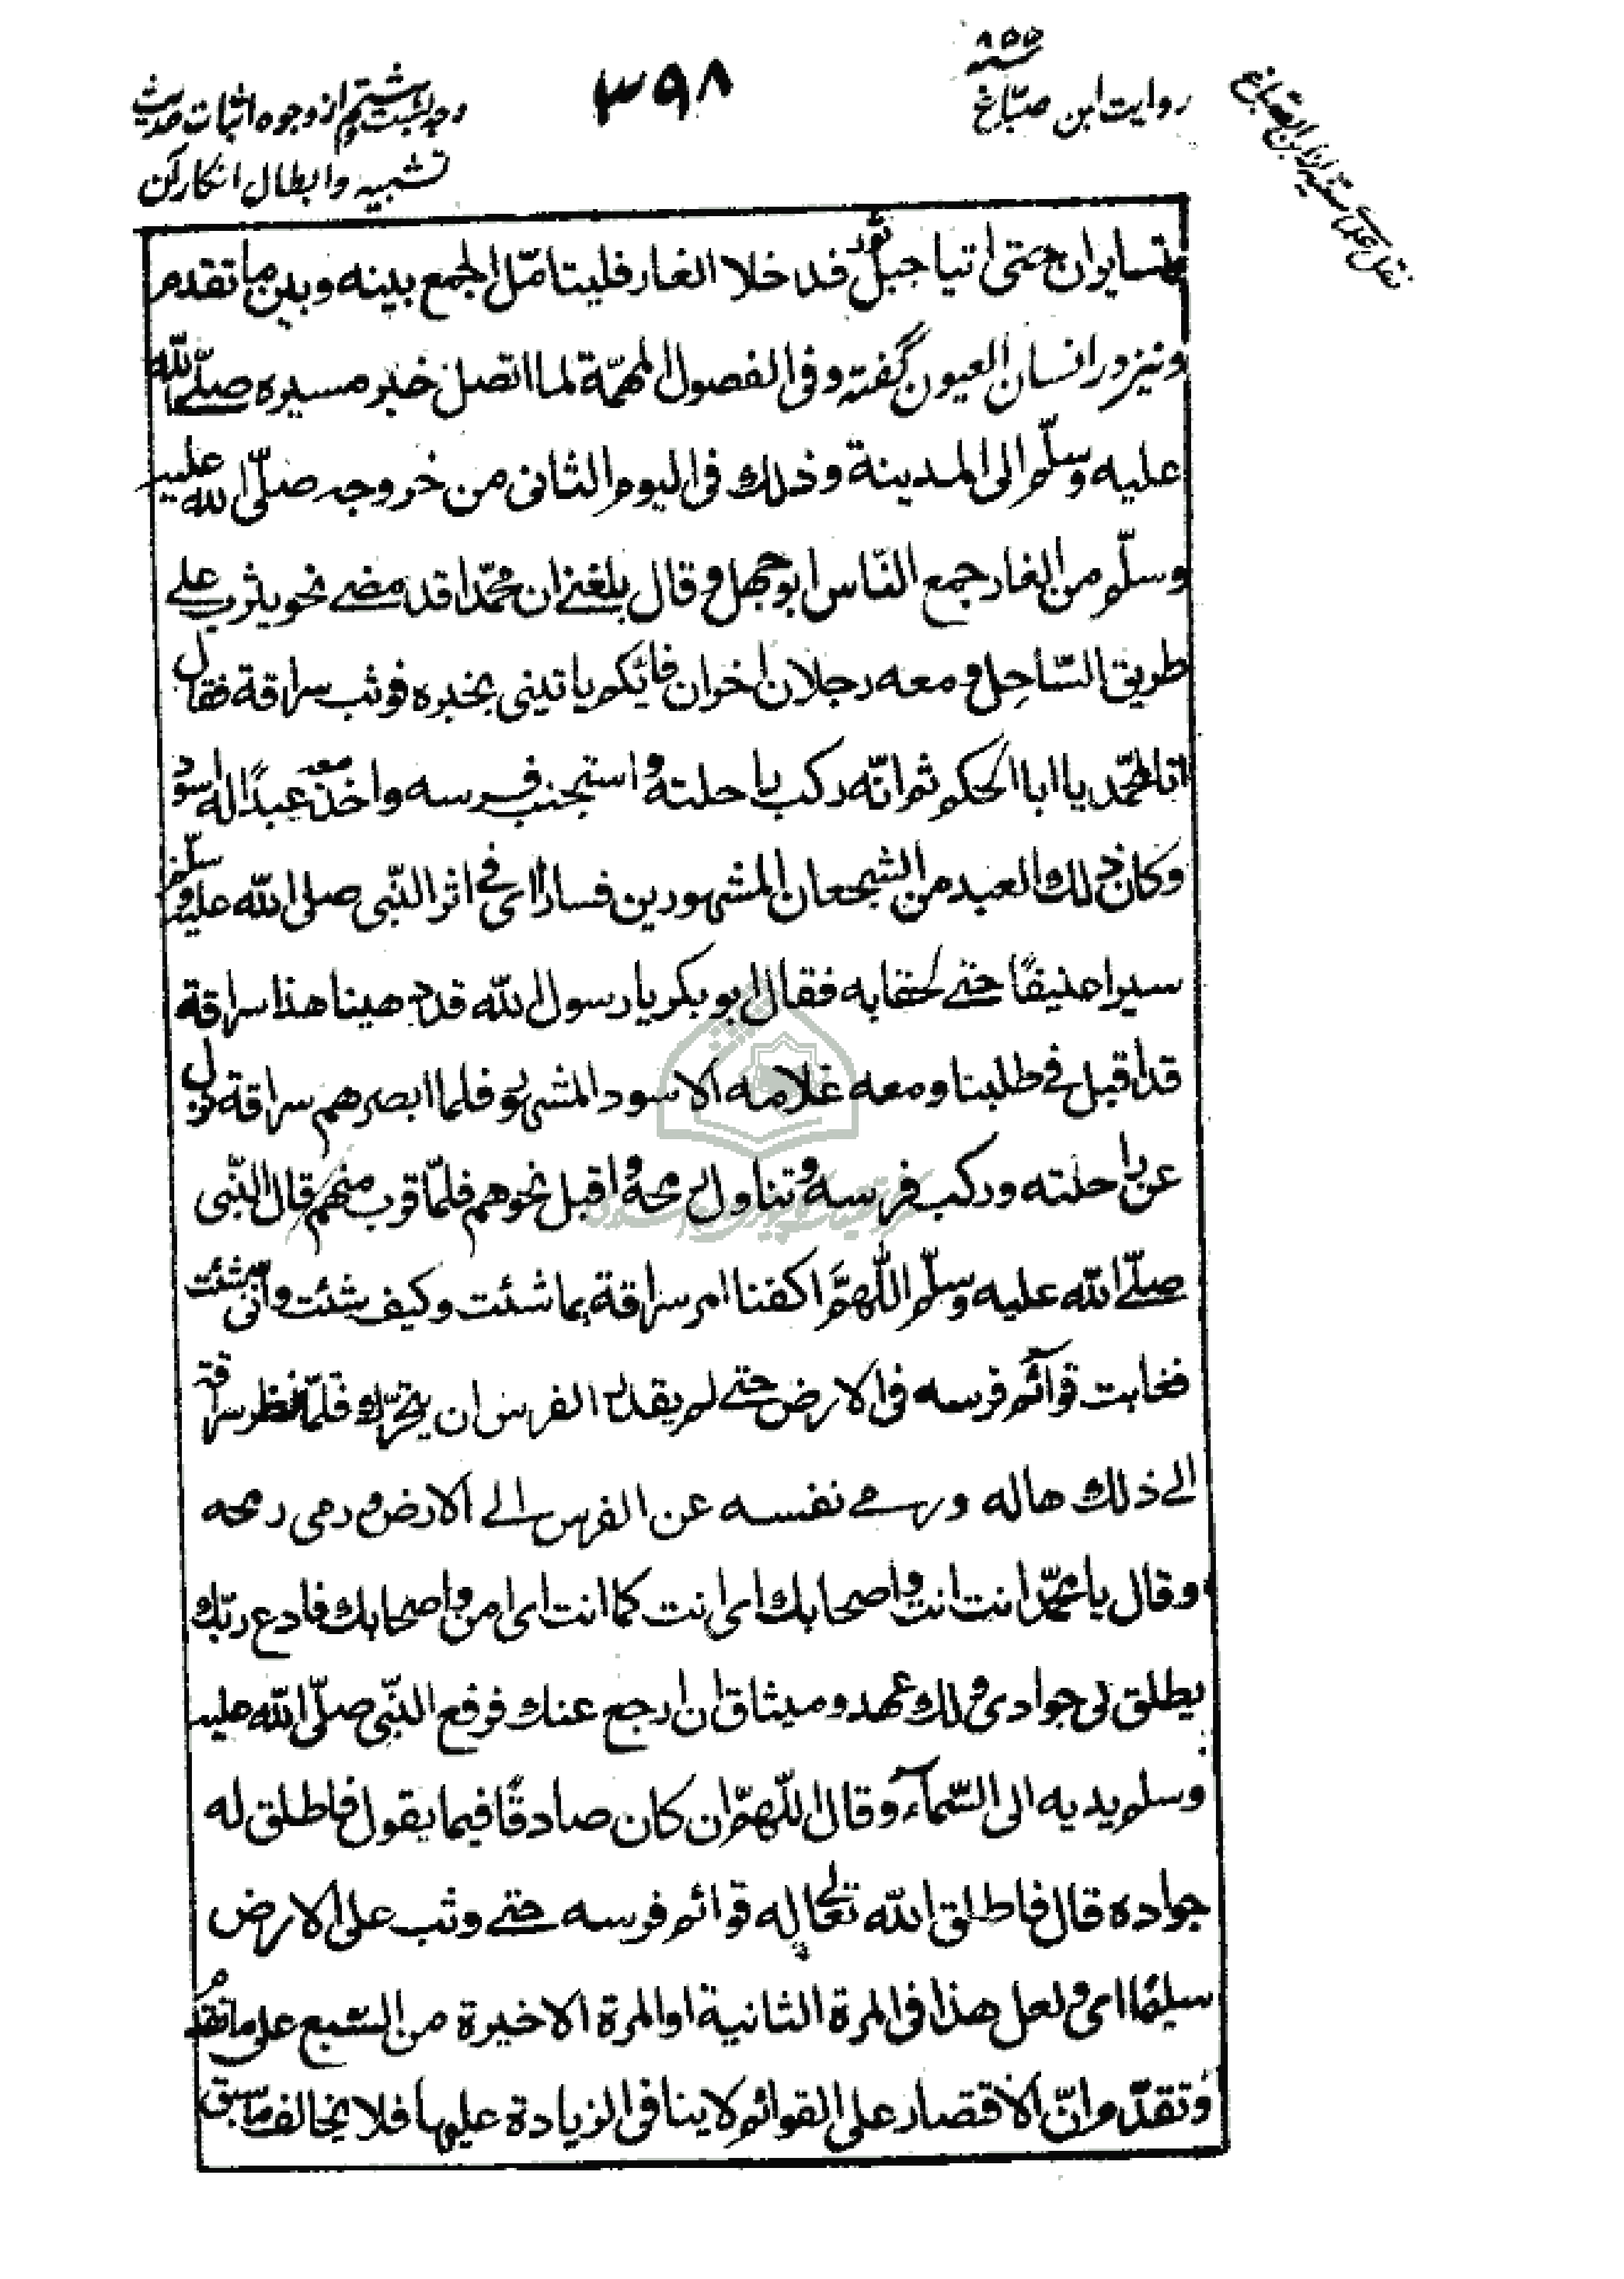 سنه ٨٥٥
روايت ابن صبّاغ
٣٩٨
وجه بيست و هشتم از وجوه اثبات حديث
تشبيه و ابطال انكار آن
يتسايران حتى اتيا جبل ثور فدخلا الغار فليتامّل الجمع بينه وبين ما تقدم
ونيز در انسان العيون گفته وفى الفصول المهمّة لما اتصل خبر مسيره صلّے الله
عليه وسلّم الى المدينة وذلك فى اليوم الثانى من خروجه صلّى الله عليه
وسلّم من الغار جمع النّاس ابو جهل وقال بلغنے ان محمّدا قد مضے نحو يثرب علے
طريق السّاحل ومعه رجلان اخران فايّكم ياتينى بخبره فوثب سراقة فقال
انا لمحمّد يا ابا الحكم ثم انّه ركب راحلته واستجنب فرسه واخذ معه عبدًا له اسود
وكان ذلك العبد من الشجعان المشهورين فسارا اى فے اثر النّبى صلى الله عليه وسلّم
سيرا عنيفًا حتے لحقا به فقال ابو بكر يا رسول الله قد دهينا هذا سراقة
قد اقبل فے طلبنا ومعه غلامه الاسود المشهور فلما ابصرهم سراقة نزل
عن راحلته وركب فرسه وتناول رمحه واقبل نحوهم فلمّا قرب منهم قال النّبى
صلّے الله عليه وسلّم اللّهمَّ اكفنا امر سراقة بما شئت وكيف شئت وانّى شئت
فغابت قوائم فرسه فى الارض حتے لم يقدر الفرس ان يتحرّك فلمّا نظر سراقة
الے ذلك هاله ورمے نفسه عن الفرس الے الارض ورمى رمحه
وقال يا محمّد انت انت واصحابك اى انت كما انت اى امن واصحابك فادع ربّك
يطلق لى جوادى ولك عهد وميثاق ان ارجع عنك فرفع النّبى صلّى الله عليه
وسلم يديه الى السّماء وقال اللّهمّ ان كان صادقًا فيما يقول فاطلق له
جواده قال فاطلق الله تعالے له قوائم فرسه حتے وثب على الارض
سليمًا اى ولعل هذا فى المرة الثانية او المرة الاخيرة من السّبع على ما تقدم
وتقدّم وانّ الاقتصار على القوائم لا ينافى الزيادة عليها فلا يخالف ما سبق